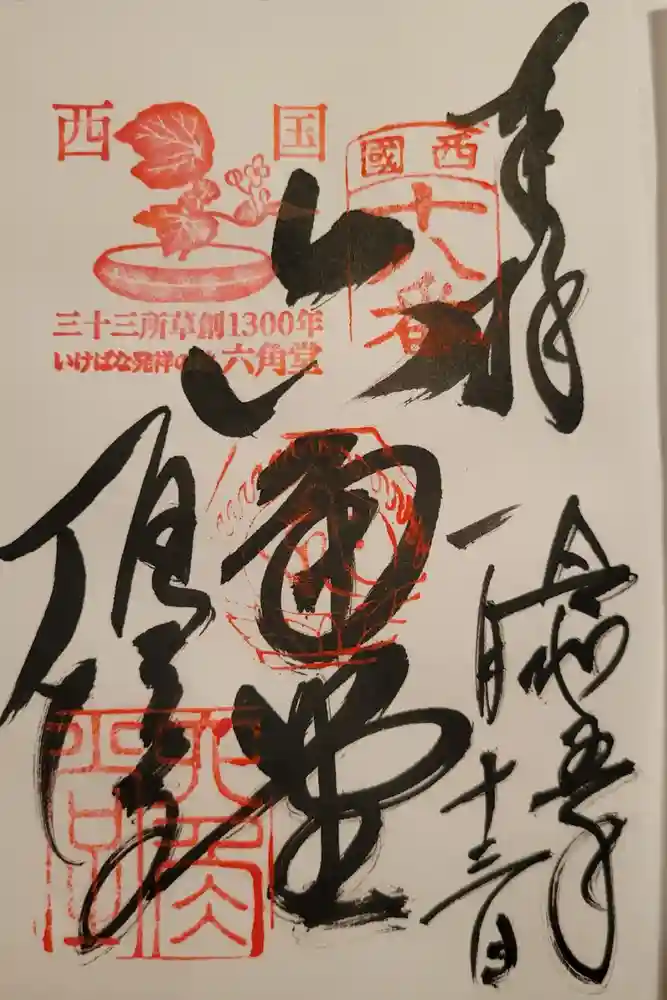 奉拝
令和五年
一月十三日
西國
十八番
六角堂
西 国
三十三所草創1300年
いけばな発祥の 六角堂